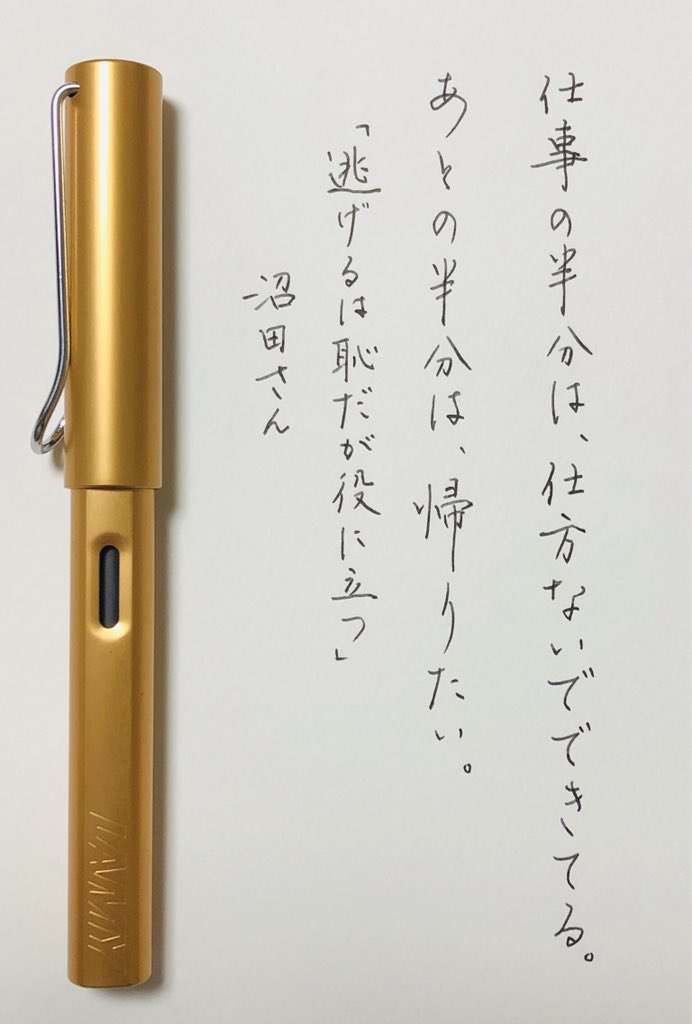 仕事の半分は、仕方ないでできてる。
あとの半分は、帰りたい。
「逃げるは恥だが役に立つ」
沼田さん
LAMY